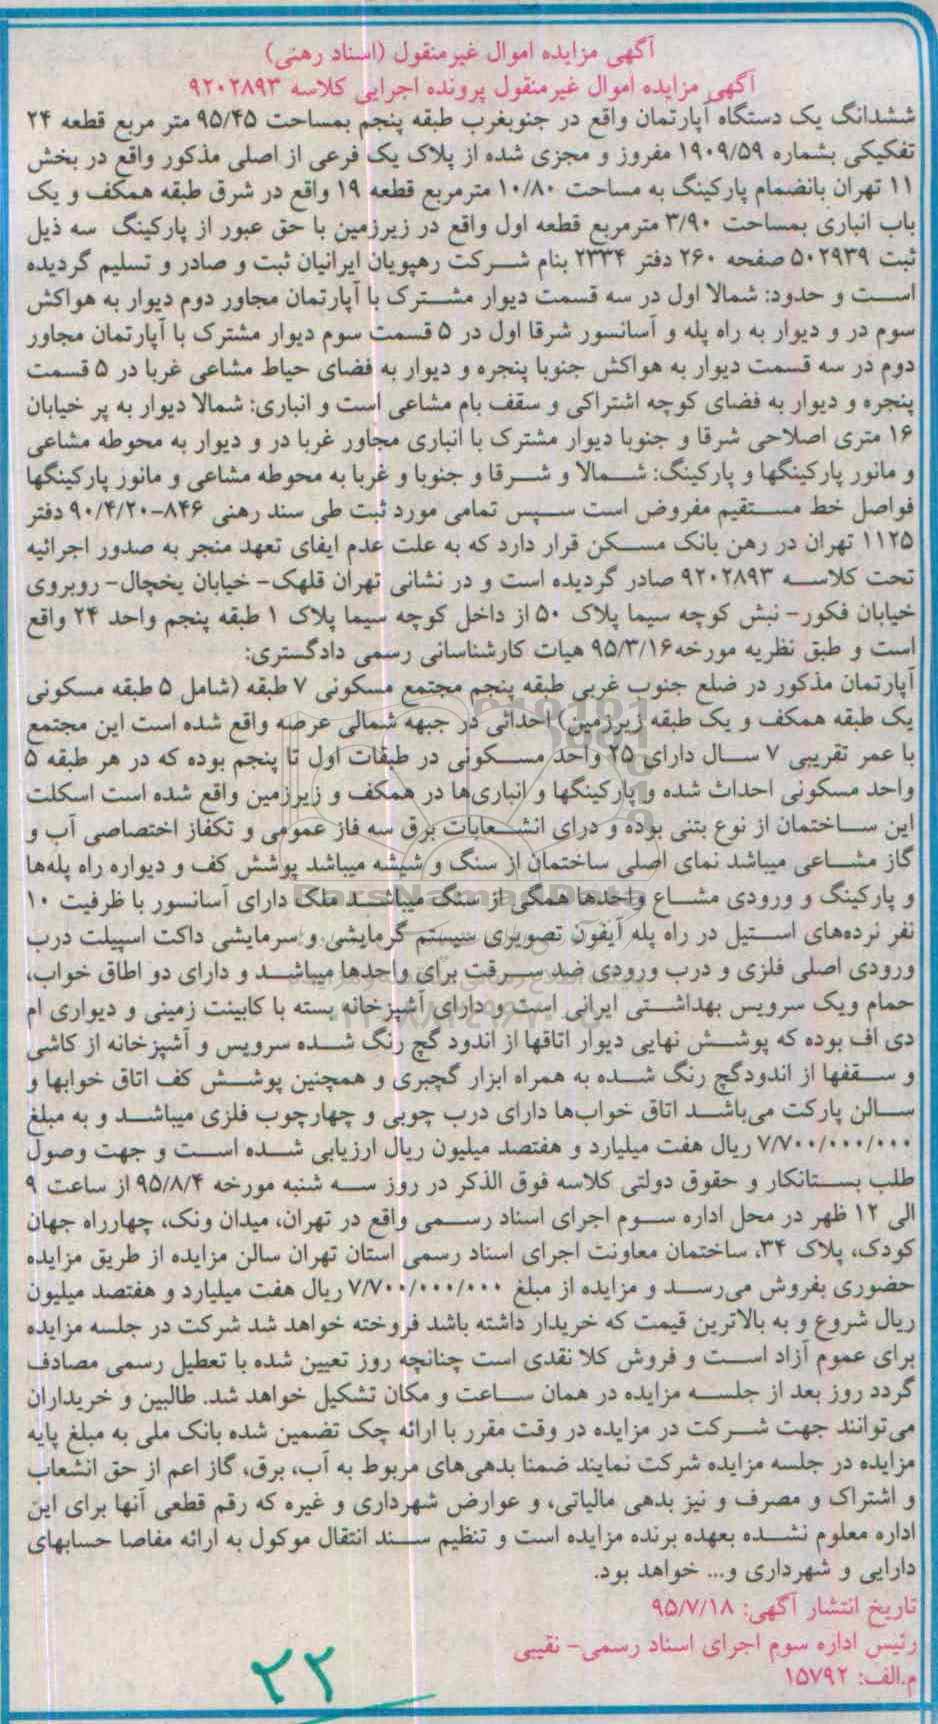 آگهی مزایده اموال غیرمنقول (اسناد رهنی)
آگهی مزایده اموال غیرمنقول پرونده اجرایی کلاسه ۹۲۰۲۸۹۳
ششدانگ یک دستگاه آپارتمان واقع در جنوبغرب طبقه پنجم بمساحت ۹۵/۴۵ متر مربع قطعه ۲۴
تفکیکی بشماره ۱۹۰۹/۵۹ مفروز و مجزی شده از پلاک یک فرعی از اصلی مذکور واقع در بخش
۱۱ تهران بانضمام پارکینگ به مساحت ۱۰/۸۰ مترمربع قطعه ۱۹ واقع در شرق طبقه همکف و یک
باب انباری بمساحت ۳/۹۰ مترمربع قطعه اول واقع در زیرزمین با حق عبور از پارکینگ سه ذیل
ثبت ۵۰۲۹۳۹ صفحه ۲۶۰ دفتر ۲۳۳۴ بنام شرکت رهپویان ایرانیان ثبت و صادر و تسلیم گردیده
است و حدود: شمالا اول در سه قسمت دیوار مشترک با آپارتمان مجاور دوم دیوار به هواکش
سوم در و دیوار به راه پله و آسانسور شرقا اول در ۵ قسمت سوم دیوار مشترک با آپارتمان مجاور
دوم در سه قسمت دیوار به هواکش جنوبا پنجره و دیوار به فضای حیاط مشاعی غربا در ۵ قسمت
پنجره و دیوار به فضای کوچه اشتراکی و سقف بام مشاعی است و انباری: شمالا دیوار به پر خیابان
۱۶ متری اصلاحی شرقا و جنوبا دیوار مشترک با انباری مجاور غربا در و دیوار به محوطه مشاعی
و مانور پارکینگها و پارکینگ: شمالا و شرقا و جنوبا و غربا به محوطه مشاعی و مانور پارکینگها
فواصل خط مستقیم مفروض است سپس تمامی مورد ثبت طی سند رهنی ۸۴۶-۹۰/۴/۲۰ دفتر
۱۱۲۵ تهران در رهن بانک مسکن قرار دارد که به علت عدم ایفای تعهد منجر به صدور اجرائیه
تحت کلاسه ۹۲۰۲۸۹۳ صادر گردیده است و در نشانی تهران قلهک- خیابان یخچال- روبروی
خیابان فکور- نبش کوچه سیما پلاک ۵۰ از داخل کوچه سیما پلاک ۱ طبقه پنجم واحد ۲۴ واقع
است و طبق نظریه مورخه ۹۵/۳/۱۶ هیات کارشناسانی رسمی دادگستری:
آپارتمان مذکور در ضلع جنوب غربی طبقه پنجم مجتمع مسکونی ۷ طبقه (شامل ۵ طبقه مسکونی
یک طبقه همکف و یک طبقه زیرزمین) احداثی در جبهه شمالی عرصه واقع شده است این مجتمع
با عمر تقریبی ۷ سال دارای ۲۵ واحد مسکونی در طبقات اول تا پنجم بوده که در هر طبقه ۵
واحد مسکونی احداث شده و پارکینگها و انباری‌ها در همکف و زیرزمین واقع شده است اسکلت
این ساختمان از نوع بتنی بوده و درای انشعابات برق سه فاز عمومی و تکفاز اختصاصی آب و
گاز مشاعی میباشد نمای اصلی ساختمان از سنگ و شیشه میباشد پوشش کف و دیواره راه پله‌ها
و پارکینگ و ورودی مشاع واحدها همگی از سنگ میباشد ملک دارای آسانسور با ظرفیت ۱۰
نفر نرده‌های استیل در راه پله آیفون تصویری سیستم گرمایشی و سرمایشی داکت اسپیلت درب
ورودی اصلی فلزی و درب ورودی ضد سرقت برای واحدها میباشد و دارای دو اطاق خواب،
حمام ویک سرویس بهداشتی ایرانی است و دارای آشپزخانه بسته با کابینت زمینی و دیواری ام
دی اف بوده که پوشش نهایی دیوار اتاقها از اندود گچ رنگ شده سرویس و آشپزخانه از کاشی
و سقفها از اندودگچ رنگ شده به همراه ابزار گچبری و همچنین پوشش کف اتاق خوابها و
سالن پارکت می‌باشد اتاق خواب‌ها دارای درب چوبی و چهارچوب فلزی میباشد و به مبلغ
۷/۷۰۰/۰۰۰/۰۰۰ ریال هفت میلیارد و هفتصد میلیون ریال ارزیابی شده است و جهت وصول
طلب بستانکار و حقوق دولتی کلاسه فوق الذکر در روز سه شنبه مورخه ۹۵/۸/۴ از ساعت ۹
الی ۱۲ ظهر در محل اداره سوم اجرای اسناد رسمی واقع در تهران، میدان ونک، چهارراه جهان
کودک، پلاک ۳۴، ساختمان معاونت اجرای اسناد رسمی استان تهران سالن مزایده از طریق مزایده
حضوری بفروش می‌رسد و مزایده از مبلغ ۷/۷۰۰/۰۰۰/۰۰۰ ریال هفت میلیارد و هفتصد میلیون
ریال شروع و به بالاترین قیمت که خریدار داشته باشد فروخته خواهد شد شرکت در جلسه مزایده
برای عموم آزاد است و فروش کلا نقدی است چنانچه روز تعیین شده با تعطیل رسمی مصادف
گردد روز بعد از جلسه مزایده در همان ساعت و مکان تشکیل خواهد شد. طالبین و خریداران
می‌توانند جهت شرکت در مزایده در وقت مقرر با ارائه چک تضمین شده بانک ملی به مبلغ پایه
مزایده در جلسه مزایده شرکت نمایند ضمنا بدهی‌های مربوط به آب، برق، گاز اعم از حق انشعاب
و اشتراک و مصرف و نیز بدهی مالیاتی، و عوارض شهرداری و غیره که رقم قطعی آنها برای این
اداره معلوم نشده بعهده برنده مزایده است و تنظیم سند انتقال موکول به ارائه مفاصا حسابهای
دارایی و شهرداری و... خواهد بود.
تاریخ انتشار آگهی: ۹۵/۷/۱۸
رئیس اداره سوم اجرای اسناد رسمی- نقیبی
م.الف: ۱۵۷۹۲
۲۲